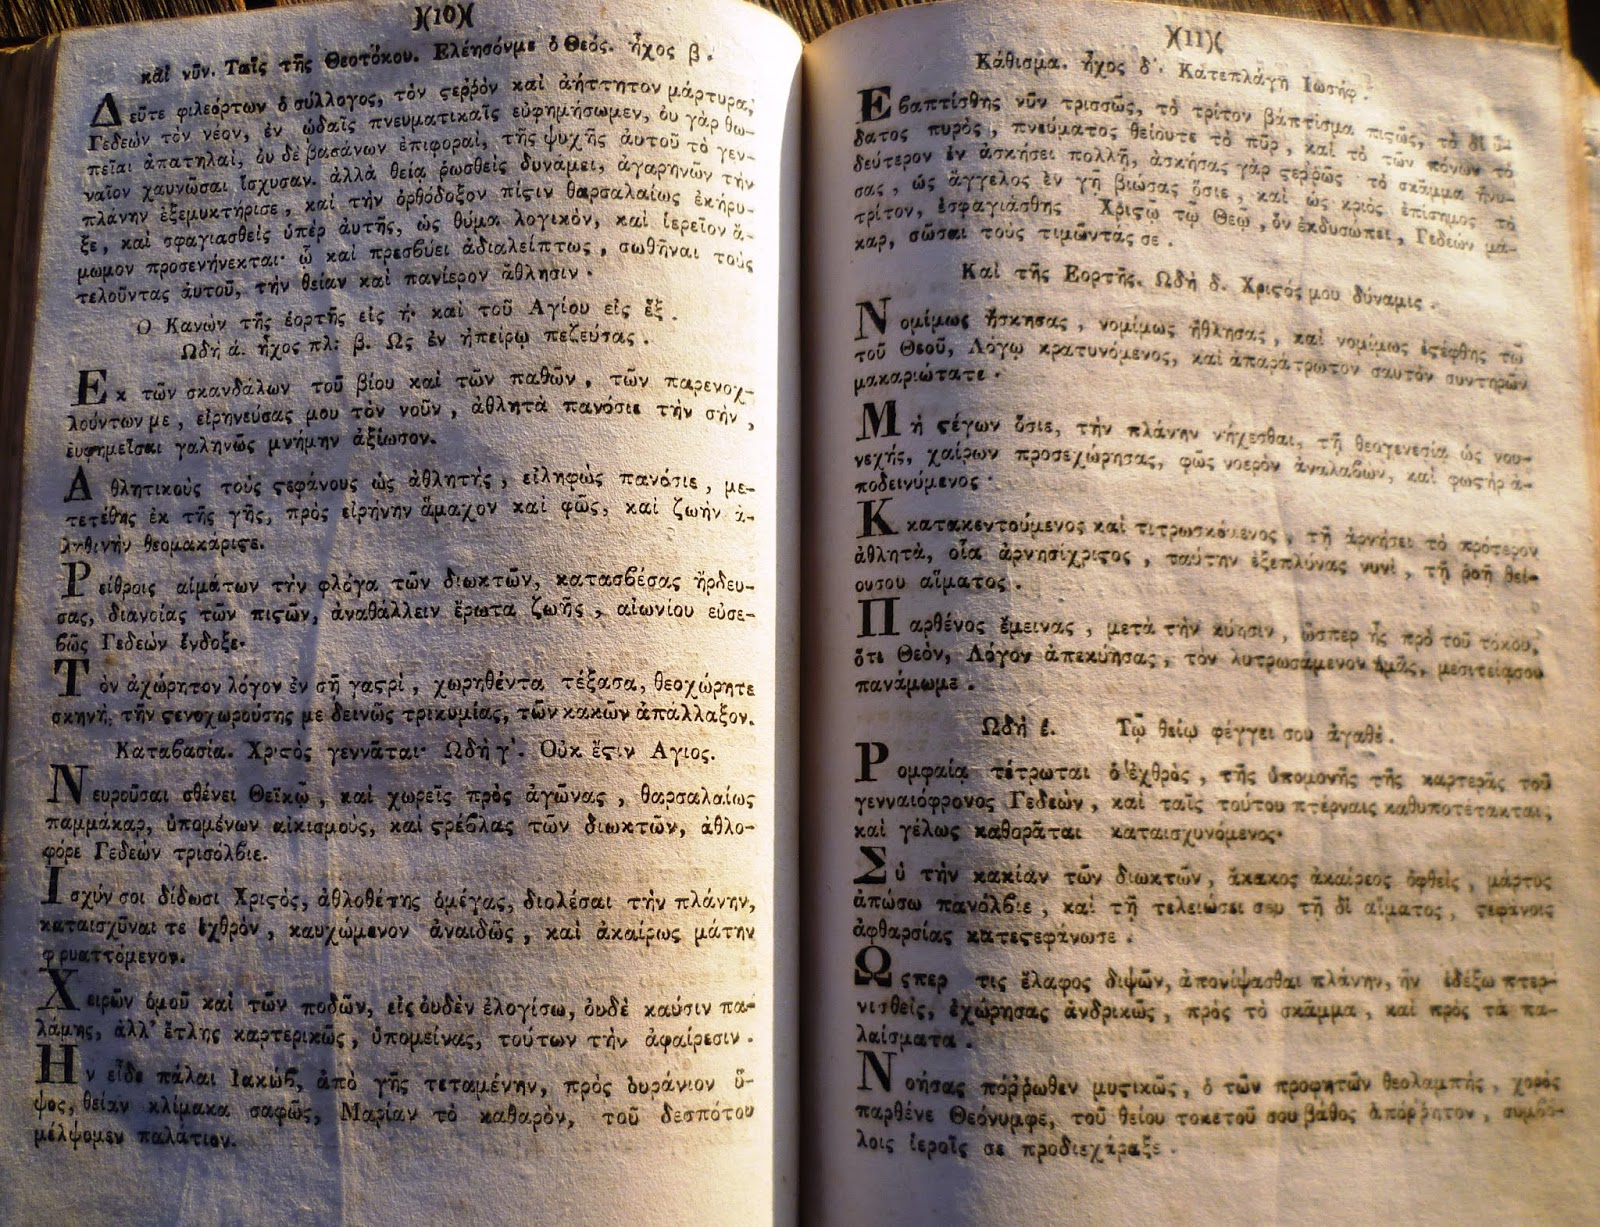 )(10)(
καὶ νῦν. Ταῖς τῆς Θεοτόκου. Ελέησόνμε ὁ Θεός. ἦχος β.
Δεῦτε φιλεόρτων ὁ σύλλογος, τὸν ϛεῤῥὸν καὶ ἀήττητον μάρτυρα,
Γεδεὼν τὸν νέον, ἐν ᾠδαῖς πνευματικαῖς εὐφημήσωμεν, ὀυ γὰρ θω-
πεῖαι ἀπατηλαί, ὀυ δὲ βασάνων ἐπιφοραί, τῆς ψυχῆς ἀυτοῦ τὸ γεν-
ναῖον χαυνῶσαι ἴσχυσαν. ἀλλὰ θείᾳ ῥωσθεὶς δυνάμει, ἀγαρηνῶν τὴν
πλάνην ἐξεμυκτήρισε, καὶ τὴν ὀρθόδοξον πίϛιν θαρσαλαίως ἐκήρυ-
ξε, καὶ σφαγιασθεὶς ὑπὲρ ἀυτῆς, ὡς θύμα λογικὸν, καὶ ἱερεῖον ἄ-
μωμον προσενήνεκται· ᾧ καὶ πρεσβύει ἀδιαλείπτως, σωθῆναι τοὺς
τελοῦντας ἀυτοῦ, τὴν θείαν καὶ πανίερον ἄθλησιν.
Ο Κανὼν τῆς ἑορτῆς εἰς ή· καὶ τοῦ Αγίου εἰς ἕξ.
Ωδὴ ά. ἦχος πλ: β. Ως ἐν ἠπείρῳ πεζεύσας.
Εκ τῶν σκανδάλων τοῦ βίου καὶ τῶν παθῶν, τῶν παρενοχ-
λούντων με, εἰρηνεύσας μου τὸν νοῦν, ἀθλητὰ πανόσιε τὴν σὴν,
ἐυφημεῖσαι γαληνῶς μνήμην ἀξίωσον.
Αθλητικοὺς τοὺς ϛεφάνους ὡς ἀθλητής, εἰληφὼς πανόσιε, με-
τετέθης ἐκ τῆς γῆς, πρὸς εἰρήνην ἄμαχον καὶ φῶς, καὶ ζωὴν ἀ-
ληθινὴν θεομακάριϛε.
Ρείθροις αἱμάτων τὴν φλόγα τῶν διωκτῶν, κατασβέσας ἤρδευ-
σας, διανοίας τῶν πιϛῶν, ἀναθάλλειν ἔρωτα ζωῆς, αἰωνίου εὐσε-
βῶς Γεδεὼν ἔνδοξε·
Τὸν ἀχώρητον λόγον ἐν σῇ γαϛρὶ, χωρηθέντα τέξασα, θεοχώρητε
σκηνὴ, τῆν ϛενοχωρούσης με δεινῶς τρικυμίας, τῶν κακῶν ἀπάλλαξον.
Καταβασία. Χριϛὸς γεννᾶται· Ωδὴ γ΄. Οὐκ ἔϛιν Αγιος.
Νευροῦσαι σθένει Θεϊκῷ, καὶ χωρεῖς πρὸς ἀγῶνας, θαρσαλαίως
παμμάκαρ, ὑπομένων αἰκισμοὺς, καὶ ϛρέβλας τῶν διωκτῶν, ἀθλο-
φόρε Γεδεὼν τρισόλβιε.
Ισχύν σοι δίδωσι Χριϛὸς, ἀθλοθέτης ὁμέγας, διολέσαι τὴν πλάνην,
καταισχῦναι τε ἐχθρὸν, καυχώμενον ἀναιδῶς, καὶ ἀκαίρως μάτην
φρυαττόμενον.
Χειρῶν ὁμοῦ καὶ τῶν ποδῶν, εἰς ὀυδὲν ἐλογίσω, ὀυδὲ καύσιν πα-
λάμης, ἀλλ' ἔτλης καρτερικῶς, ὑπομείνας, τούτων τὴν ἀφαίρεσιν.
Ην εἶδε πάλαι Ιακὼβ, ἀπὸ γῆς τεταμένην, πρὸς ὀυράνιον ὕ-
ψος, θείαν κλίμακα σαφῶς, Μαρίαν τὸ καθαρὸν, τοῦ δεσπότου
μέλψομεν παλάτιον.
)(11)(
Κάθισμα. ἦχος δ'. Κατεπλάγη Ιωσήφ.
Εβαπτίσθης νῦν τρισσῶς, τὸ τρίτον βάπτισμα πιϛῶς, τὸ δἰ ὕ-
δατος πυρὸς, πνεύματος θείουτε τὸ πῦρ, καὶ τὸ τῶν πόνων τὸ
δεύτερον ἐν ἀσκήσει πολλῇ, ἀσκήσας γὰρ ϛεῤῥῶς τὸ σκάμμα ἤνυ-
σας, ὡς ἄγγελος ἐν γῇ βιώσας ὅσιε, καὶ ὡς κριὸς ἐπίσημος τὸ
τρίτον, ἐσφαγιάσθης Χριϛῷ τῷ Θεῷ, ὃν ἐκδυσώπει, Γεδεὼν μά-
καρ, σῶσαι τοὺς τιμῶντάς σε.
Καὶ τῆς Εορτῆς. Ωδὴ δ. Χριϛός μου δύναμις.
Νομίμως ἤσκησας, νομίμως ἤθλησας, καὶ νομίμως ἐϛέφθης τῷ
τοῦ Θεοῦ, Λόγῳ κρατυνόμενος, καὶ ἀπαράτρωτον σαυτὸν συντηρῶν
μακαριώτατε.
Μὴ ϛέγων ὅσιε, τὴν πλάνην νήχεσθαι, τῇ θεογενεσίᾳ ὡς νου-
νεχὴς, χαίρων προσεχώρησας, φῶς νοερὸν ἀναλαβὼν, καὶ φωϛὴρ ἀ-
ποδεινύμενος·
Κκατακεντούμενος καὶ τιτρωσκόμενος, τῇ ἀρνήσει τὸ πρότερον
ἀθλητὰ, οἷα ἀρνησίχριϛος, ταύτην ἐξεπλύνας νυνὶ, τῇ ῥοῇ θεί-
ουσου αἵματος.
Παρθένος ἔμεινας, μετὰ τὴν κύησιν, ὥσπερ ἦς πρὸ τοῦ τόκου,
ὅτι Θεὸν, Λόγον ἀπεκύησας, τὸν λυτρωσάμενον ἡμᾶς, μεσιτείαισου
πανάμωμε.
Ωδὴ έ. Τῷ θείῳ φέγγει σου ἀγαθέ.
Ρομφαίᾳ τέτρωται ὁ ἐχθρὸς, τῆς ὑπομονῆς τῆς καρτερᾶς τοῦ
γενναιόφρονος Γεδεὼν, καὶ ταῖς τούτου πτέρναις καθυποτέτακται,
καὶ γέλως καθορᾶται καταισχυνόμενος·
Σὺ τὴν κακίαν τῶν διωκτῶν, ἄκακος ἀκαίρεος ὀφθεὶς, μάρτυς
ἀπώσω πανόλβιε, καὶ τῇ τελειώσει σου τῇ δἰ αἵματος, ϛεφάνοις
ἀφθαρσίας κατεϛεφάνωσε.
Ωϛπερ τις ἔλαφος διψῶν, ἀπονίψασθαι πλάνην, ἣν ἐδέξω πτερ-
νισθεὶς, ἐχώρησας ἀνδρικῶς, πρὸς τὸ σκάμμα, καὶ πρὸς τὰ πα-
λαίσματα.
Νοήσας πόῤῥωθεν μυϛικῶς, ὁ τῶν προφητῶν θεολαμπὴς, χορὸς
παρθένε Θεόνυμφε, τοῦ θείου τοκετοῦ σου βάθος ἀπόῤῥητον, συμβό-
λοις ἱεροῖς σε προδιεχάραξε.